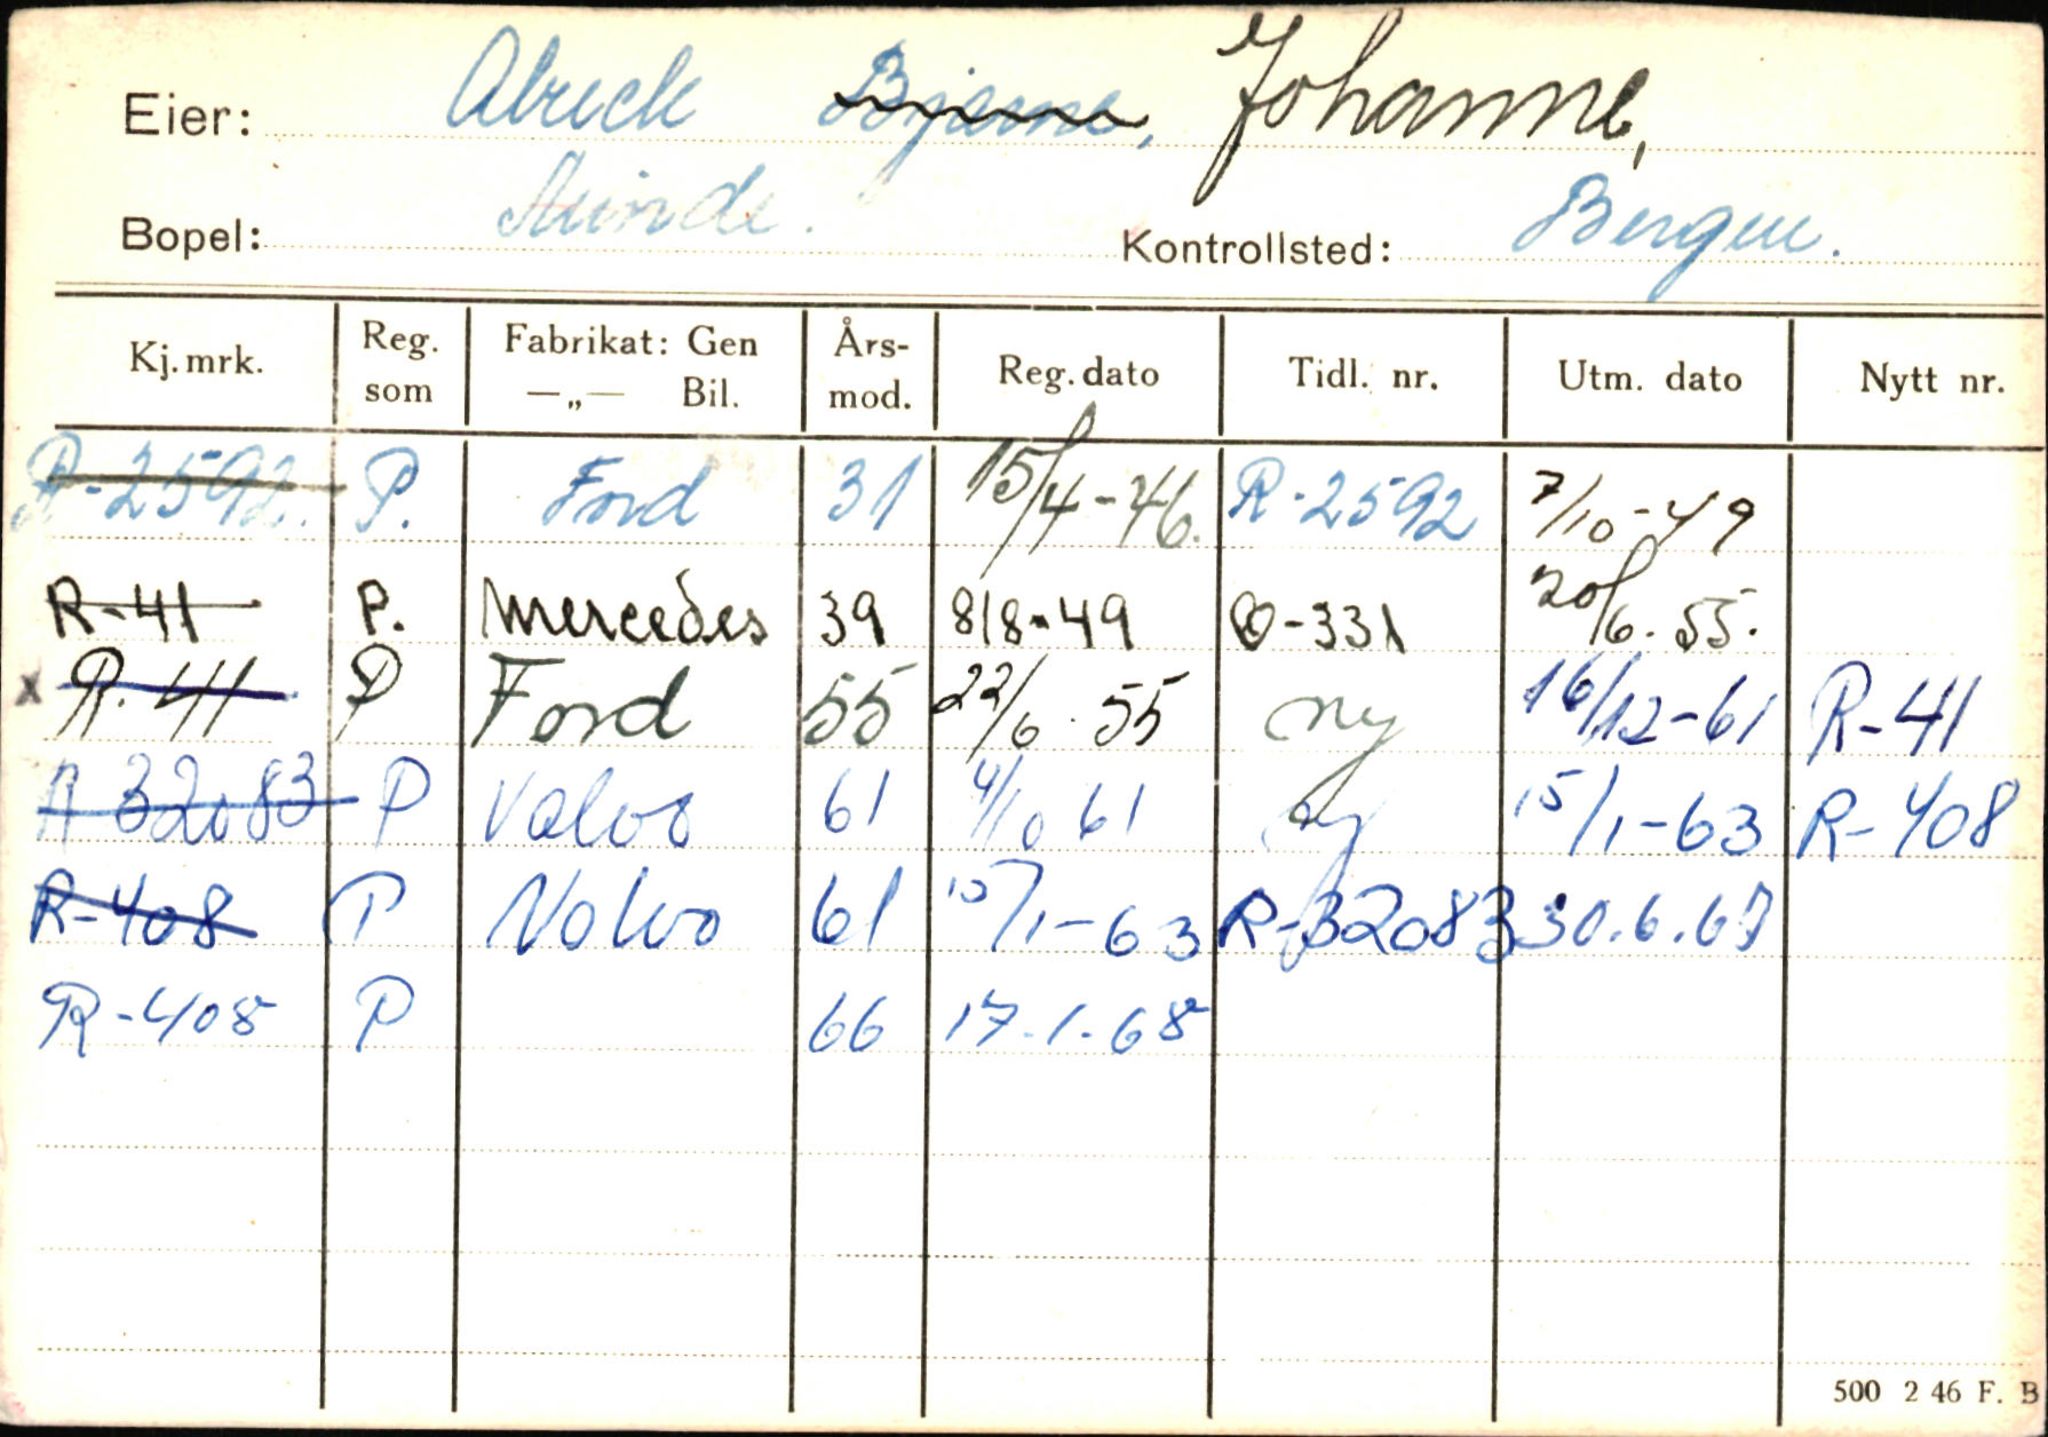 Eier: Alreck Bjarne, Johanne,
Bopel: Minde. Kontrollsted: Bergen.
Kj.mrk. Reg. som Fabrikat: Gen —„— Bil. Års-mod. Reg. dato Tidl. nr. Utm. dato Nytt nr.
R-2592. P. Ford 31 15/4-46. R-2592 7/10-49
R-41 P. Mercedes 39 8/8-49 O-331 20/6.55.
x R.41 P Ford 55 22/6.55 ny 16/12-61 R-41
R 32083 P Volvo 61 4/10 61 ny 15/1-63 R-408
R-408 P Volvo 61 15/1-63 R-32083 30.6.67
R-408 P 66 17.1.68
500 2 46 F. B